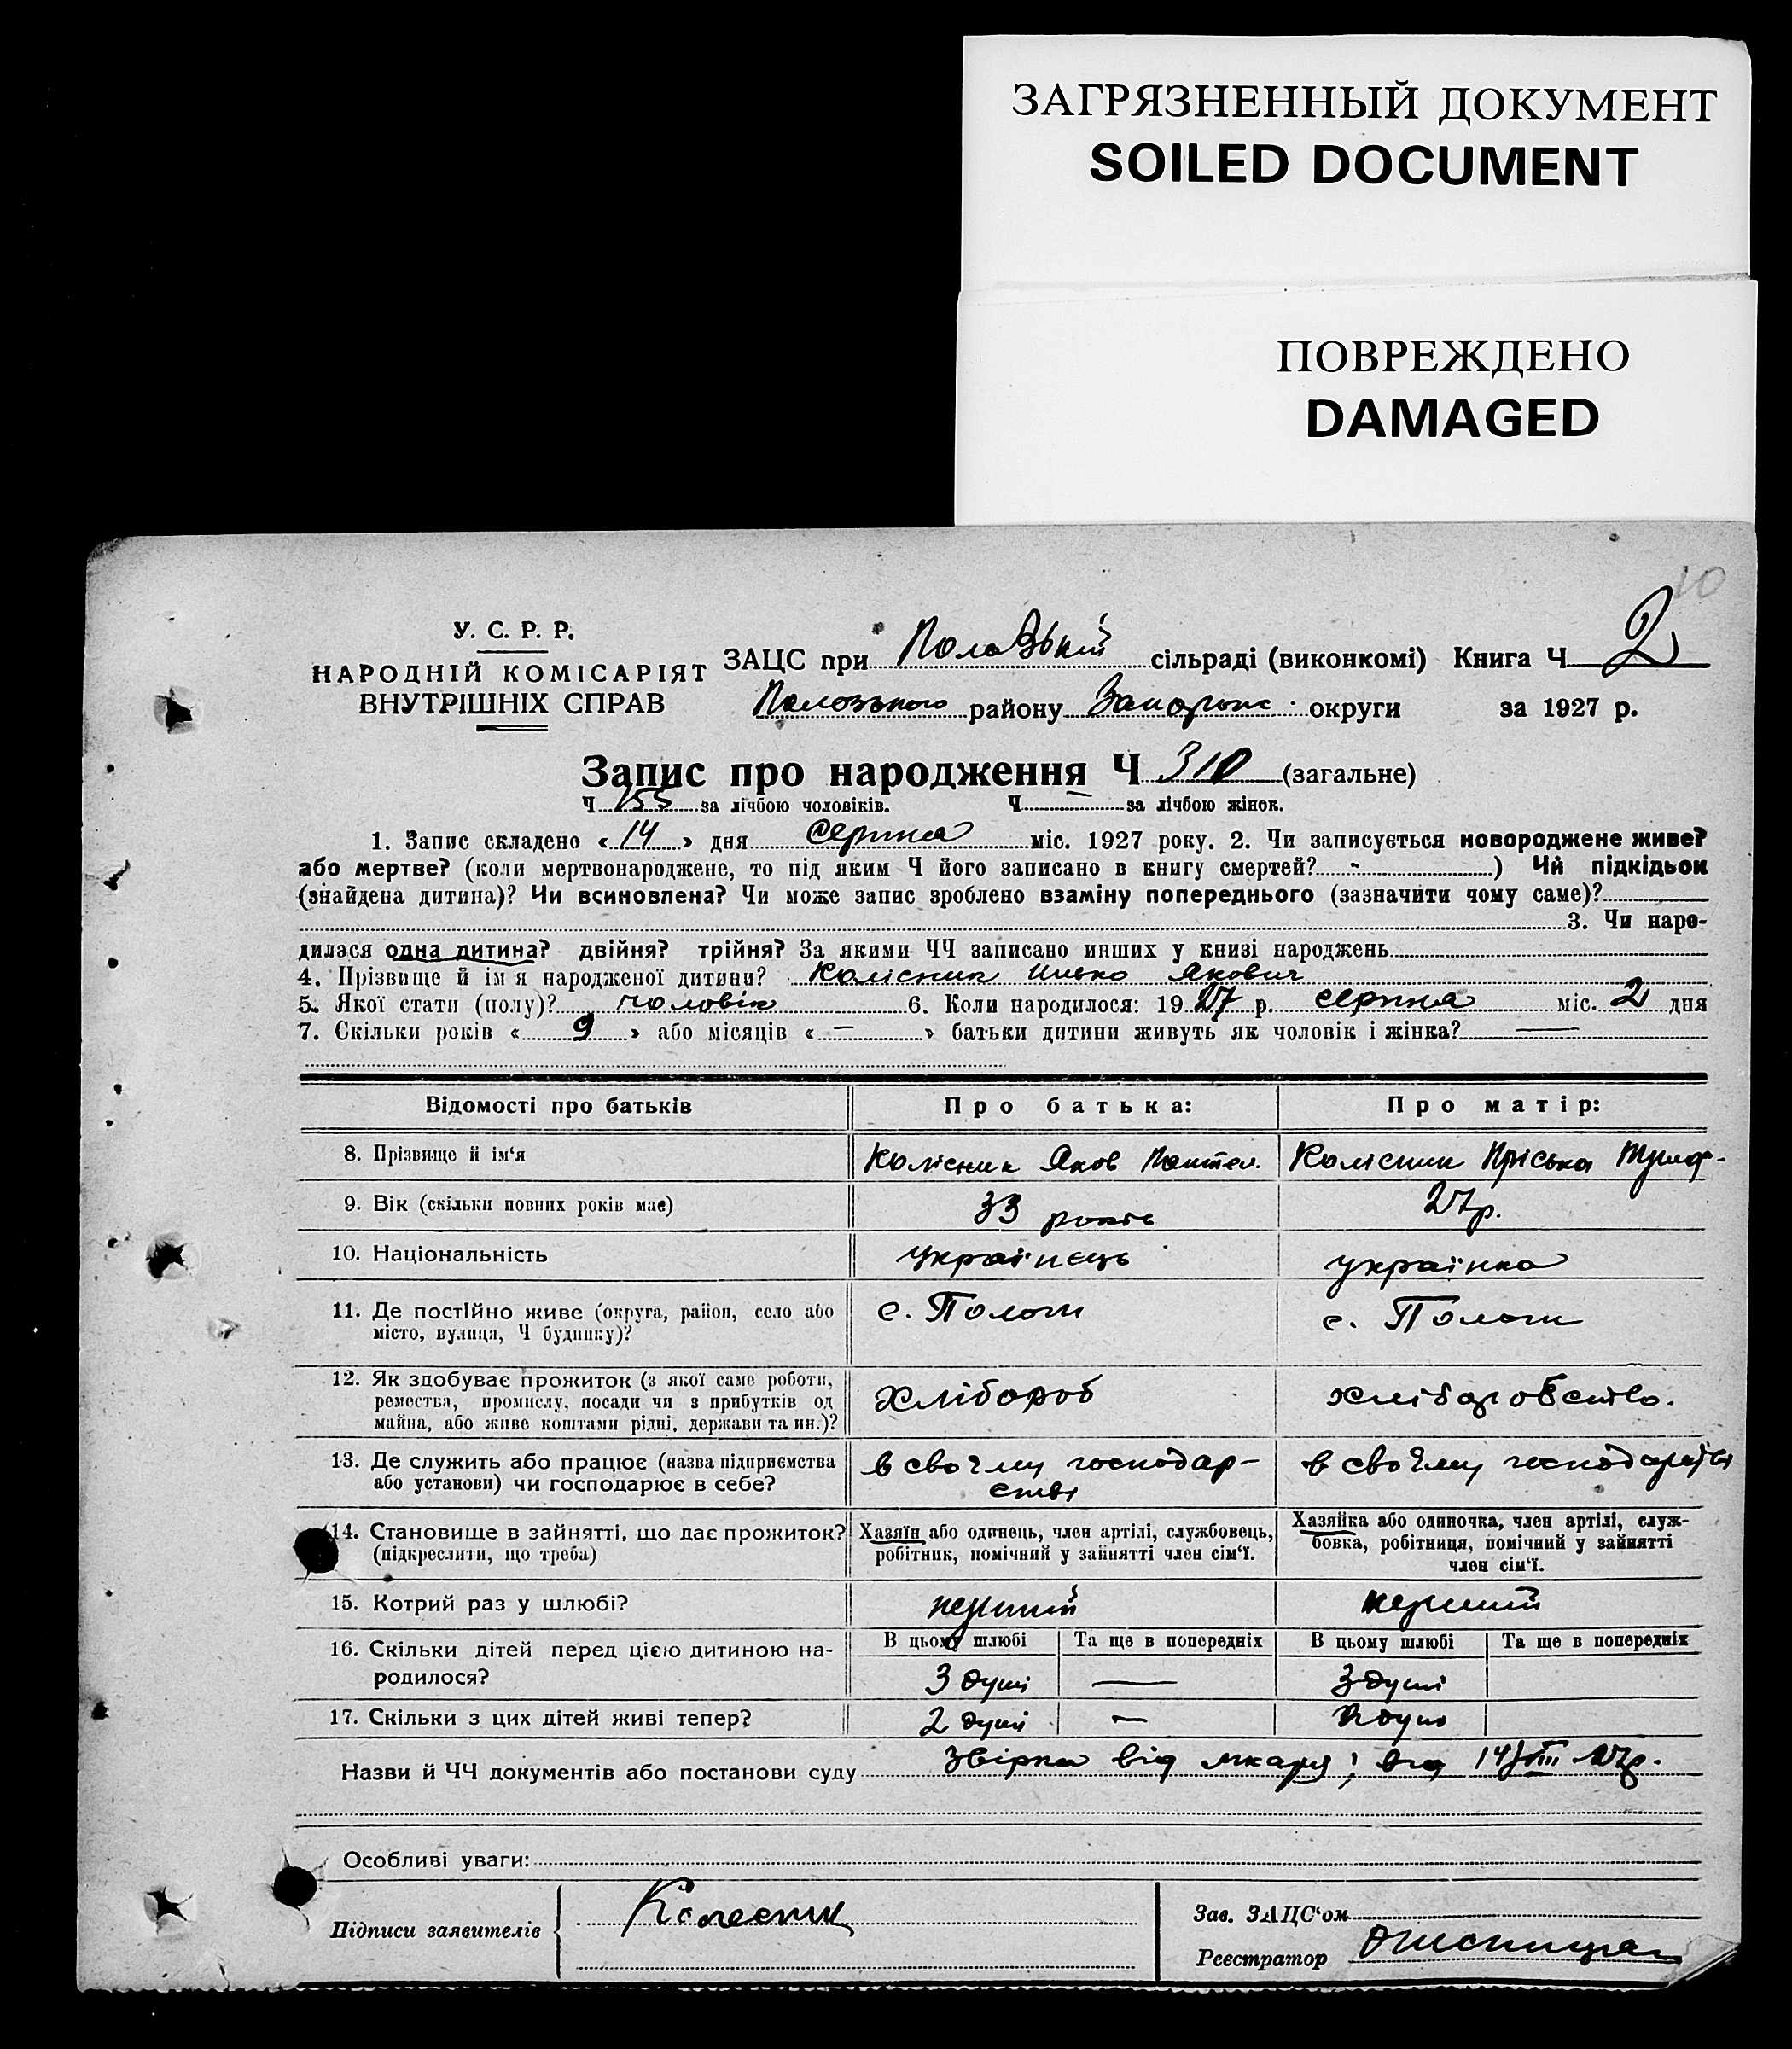 ЗАГРЯЗНЕННЫЙ ДОКУМЕНТ
SOILED DOCUMENT
ПОВРЕЖДЕНО
DAMAGED
10
У. С. Р. Р.
НАРОДНІЙ КОМІСАРІЯТ
ВНУТРІШНІХ СПРАВ
ЗАЦС при Пологзькій сільраді (виконкомі) Книга Ч 2
Пологзького району Запоріж. округи за 1927 р.
Запис про народження Ч 310 (загальне)
Ч 155 за лічбою чоловіків. Ч — за лічбою жінок.
1. Запис складено « 14 » дня серпня міс. 1927 року. 2. Чи записується новороджене живе?
або мертве? (коли мертвонароджене, то під яким Ч його записано в книгу смертей? - ) Чи підкідьок
(знайдена дитина)? Чи всиновлена? Чи може запис зроблено взаміну попереднього (зазначити чому саме)?
3. Чи наро-
дилася одна дитина? двійня? трійня? За якими ЧЧ записано инших у книзі народжень
4. Прізвище й ім'я народженої дитини? Колісник Илько Якович
5. Якої стати (полу)? чоловік 6. Коли народилося: 1927 р. серпня міс. 2 дня
7. Скільки років « 9 » або місяців « — » батьки дитини живуть як чоловік і жінка? —
Відомості про батьків Про батька: Про матір:
8. Прізвище й ім'я Колісник Яков Пантел. Колісник Пріська Триф-
9. Вік (скільки повних років має) 33 років 27р.
10. Національність українець українка
11. Де постійно живе (округа, район, село або
місто, вулиця, Ч будинку)? с. Пологи с. Пологи
12. Як здобуває прожиток (з якої саме роботи,
ремества, промислу, посади чи з прибутків од
майна, або живе коштами рідні, держави та ин.)? хлібороб хліборобство.
13. Де служить або працює (назва підприємства
або установи) чи господарює в себе? в своєму господар-
стві в своєму господарстві
14. Становище в зайнятті, що дає прожиток?
(підкреслити, що треба)
Хазяїн або одинець, член артілі, службовець,
робітник, помічний у зайнятті член сім'ї.
Хазяйка або одиночка, член артілі, служ-
бовка, робітниця, помічний у зайнятті
член сім'ї.
15. Котрий раз у шлюбі? перший перший
16. Скільки дітей перед цією дитиною на-
родилося?
В цьому шлюбі Та ще в попередніх В цьому шлюбі Та ще в попередніх
3 душі — 3 душі
17. Скільки з цих дітей живі тепер? 2 душі — 2 душі
Назви й ЧЧ документів або постанови суду звірка від лікаря; від 14/VIII 27р.
Особливі уваги:
Підписи заявителів Колесник
Зав. ЗАЦС'ом
Реєстратор